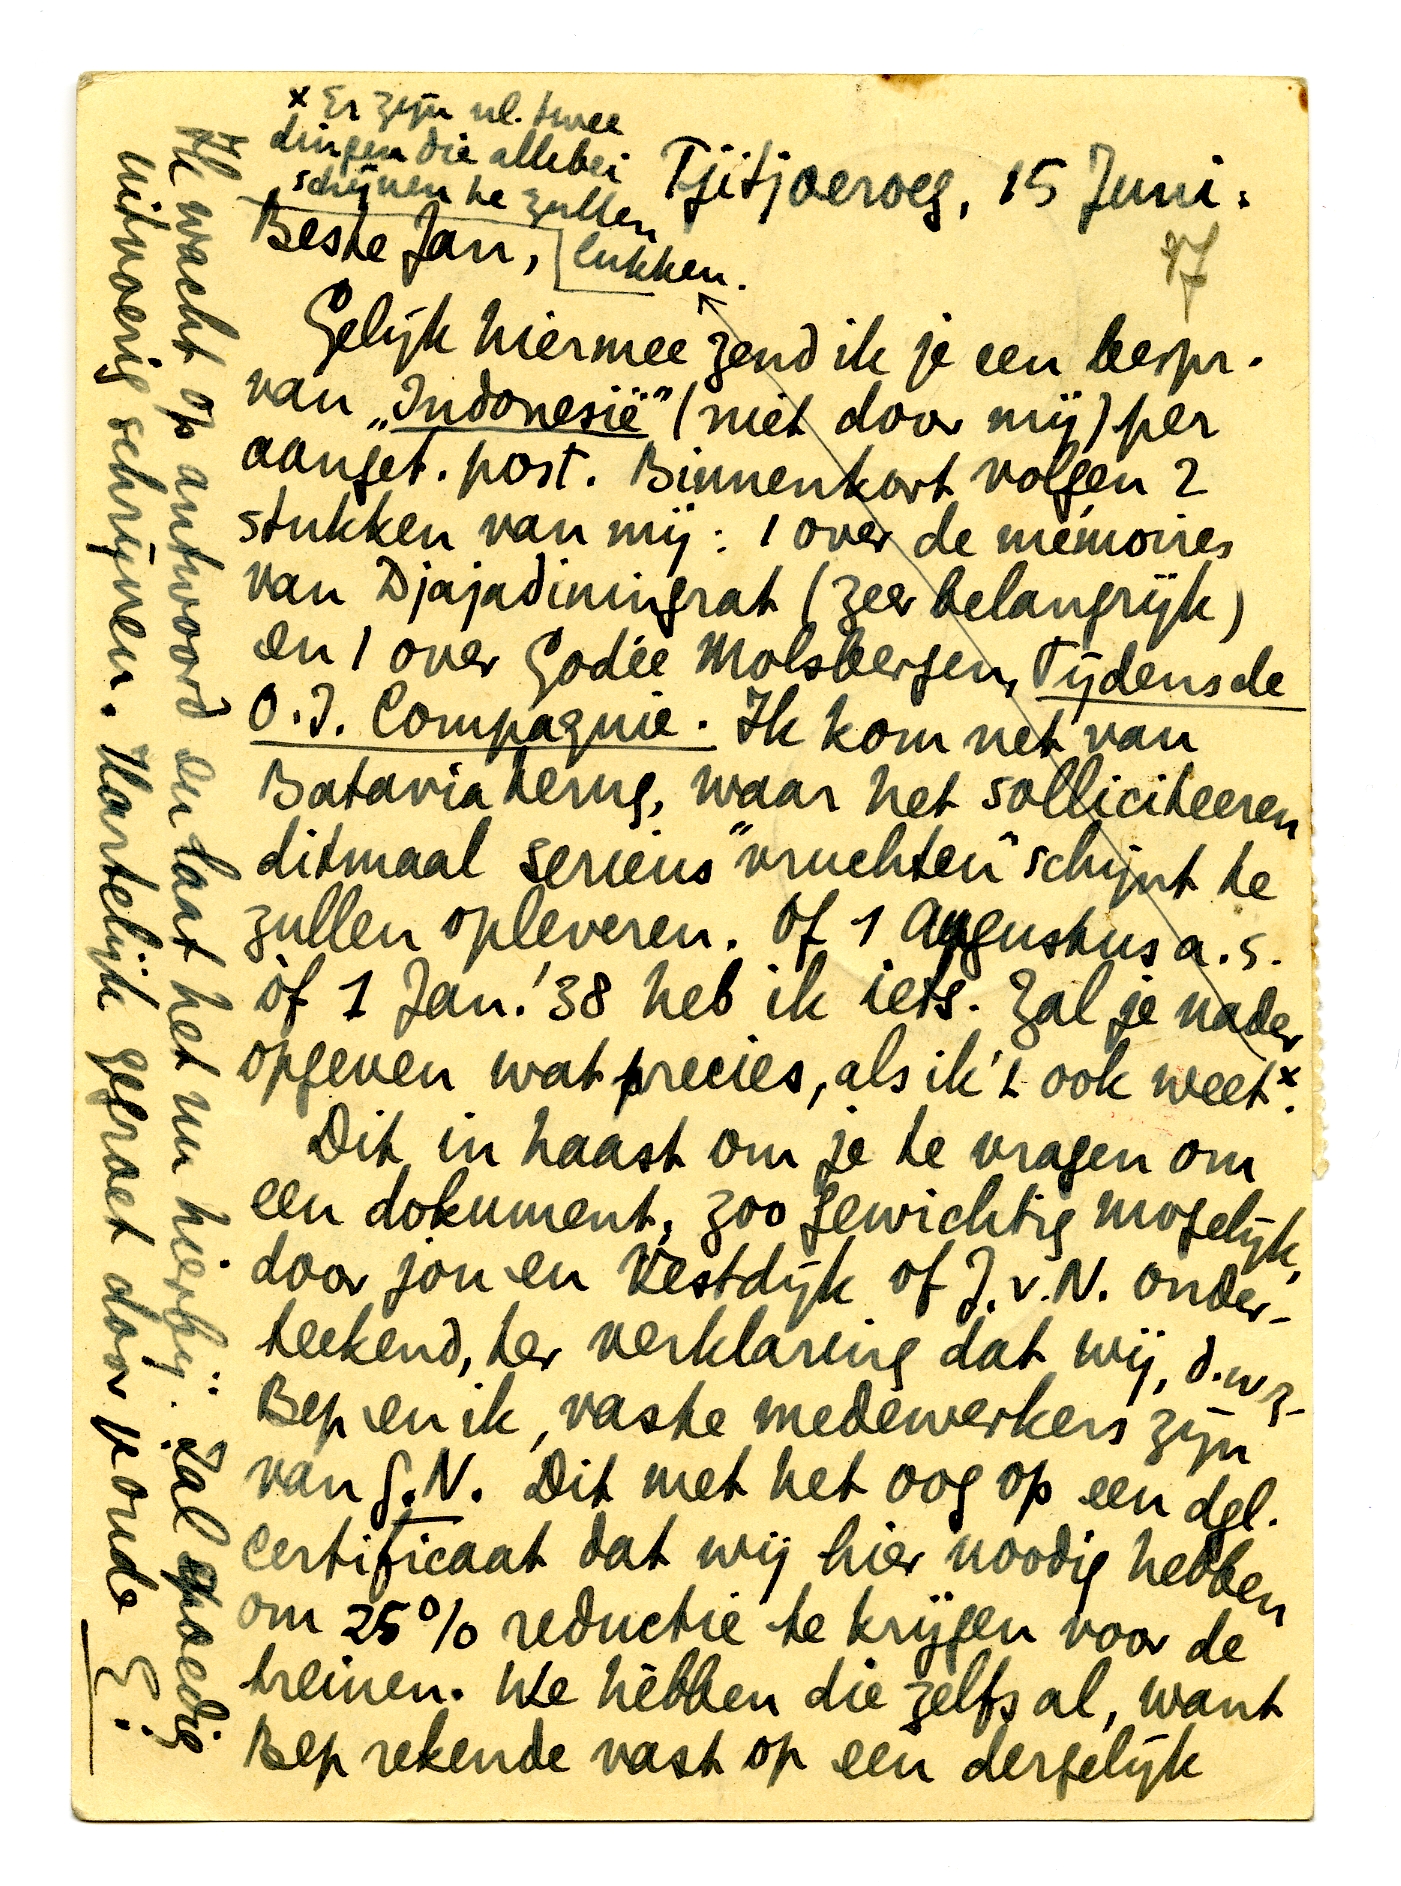 x Er zijn nl. twee
dingen die allebei
schijnen te zullen
lukken.
Tjitjoeroeg, 15 Juni.
37
Beste Jan,
Gelijk hiermee zend ik je een bespr.
van „Indonesië” (niet door mij) per
aanget. post. Binnenkort volgen 2
stukken van mij: 1 over de mémoires
van Djajadiningrat (zeer belangrijk)
en 1 over Godée Molsbergen, Tijdens de
O.I. Compagnie. Ik kom net van
Batavia terug, waar het solliciteeren
ditmaal serieus "vruchten" schijnt te
zullen opleveren. Of 1 Augustus a.s.
òf 1 Jan. '38 heb ik iets. Zal je nader
opgeven wat precies, als ik 't ook weet x.
Dit in haast om je te vragen om
een dokument, zoo gewichtig mogelijk,
door jou en Vestdijk of J.v.N. onder-
teekend, ter verklaring dat wij, d.w.z.
Bep en ik, vaste medewerkers zijn
van G.N. Dit met het oog op een dgl.
certificaat dat wij hier noodig hebben
om 25% reductie te krijgen voor de
treinen. We hèbben die zelfs al, want
Bep rekende vast op een dergelijk
Ik wacht op antwoord en laat het nu hierbij. Zal spoedig
uitvoerig schrijven. Hartelijk gegroet door je oude
E.